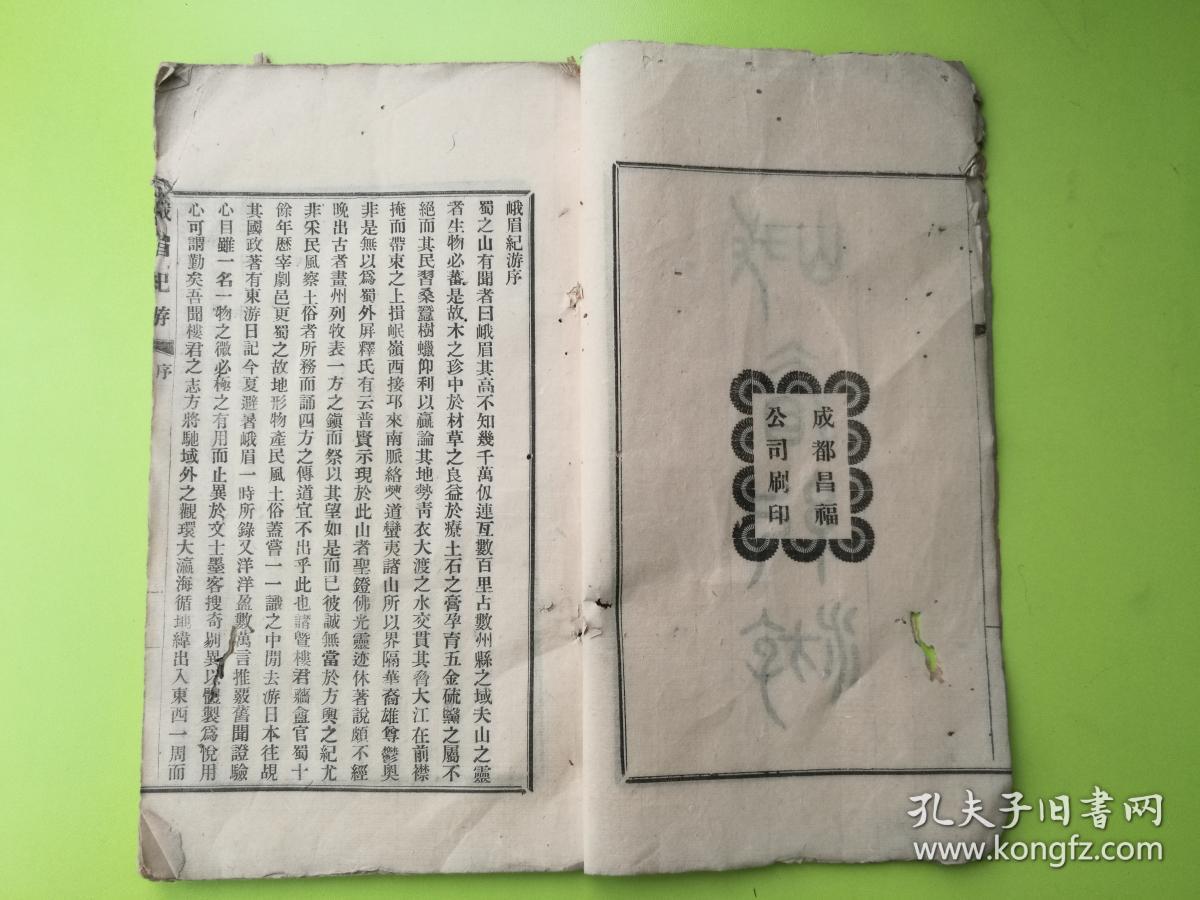 成都昌福
公司刷印
峨眉紀游序
蜀之山有聞者曰峨眉其高不知幾千萬仭連互數百里占數州縣之域夫山之靈
者生物必蕃是故木之珍中於材草之良益於療土石之膏孕育五金硫蠲之屬不
絕而其民習桑蠶樹蠟仰利以贏論其地勢靑衣大渡之水交貫其脅大江在前襟
掩而帶束之上揖岷嶺西接邛來南脈絡僰道蠻夷諸山所以界隔華裔雄尊鬱奥
非是無以爲蜀外屏釋氏有云普賢示現於此山者聖鐙佛光靈迹休著說頗不經
晚出古者畫州列牧表一方之鎭而祭以其望如是而已彼誠無當於方輿之紀尤
非采民風察土俗者所務而誦四方之傳道宜不出乎此也諸曁樓君藜盦官蜀十
餘年歷宰劇邑更蜀之故地形物產民風土俗蓋嘗一一識之中閒去游日本往覘
其國政著有東游日記今夏避暑峨眉一時所錄又洋洋盈數萬言推覈舊聞證驗
心目雖一名一物之微必極之有用而止異於文士墨客搜奇剔異以體製爲悅用
心可謂勤矣吾聞樓君之志方將馳域外之觀環大瀛海循地緯出入東西一周而
峨眉紀游
序
孔夫子旧书网
www.kongfz.com